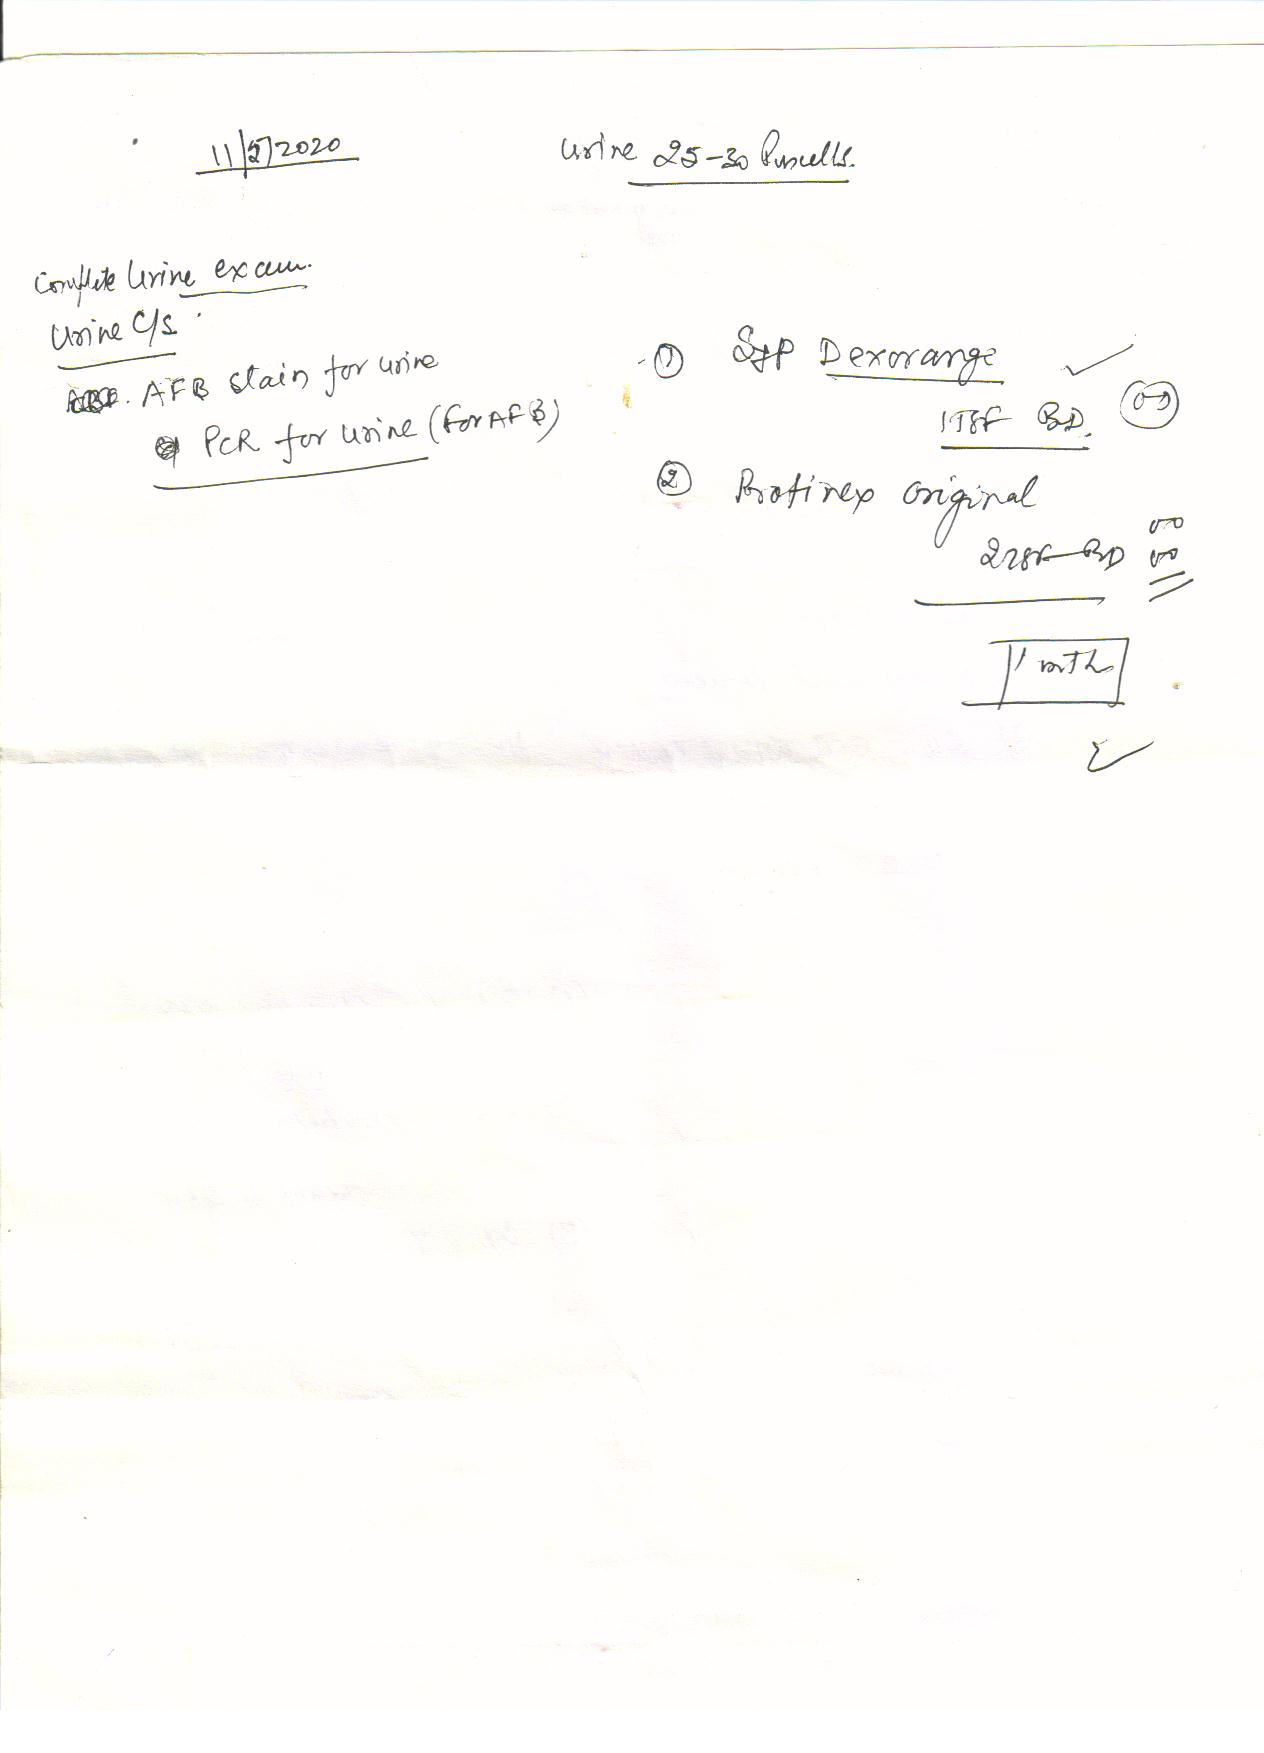 11/5/2020
Urine 25-30 Puscells.
Complete Urine exam.
Urine C/S
AFB stain for urine
PCR for urine (for AFB)
① Syp Dexorange
1TSF BD.
② Protinex original
2TSF BD
1 mth